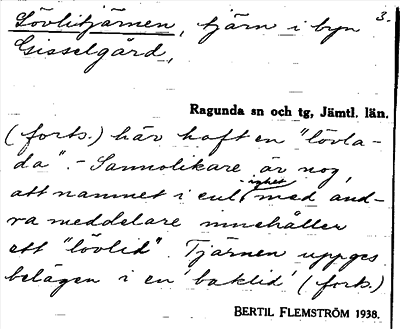 Lövlitjärnen, tjärn i byn 3.
Gisselgård,
Ragunda sn och tg, Jämtl. län.
(forts.) här haft en "lövla-
da". - Sannolikare är nog,
att namnet i enlighet med and-
ra meddelare innehåller
ett "lövlid". Tjärnen uppges
belägen i en 'baklid' (forts.)
BERTIL FLEMSTRÖM 1938.